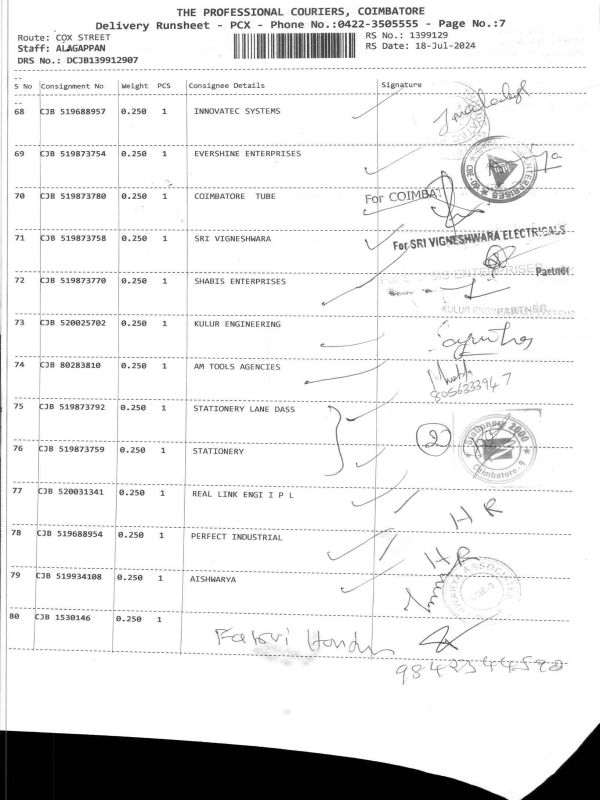 THE PROFESSIONAL COURIERS, COIMBATORE
Delivery Runsheet - PCX - Phone No.:0422-3505555 - Page No.:7
Route: COX STREET RS No.: 1399129
Staff: ALAGAPPAN RS Date: 18-Jul-2024
DRS No.: DCJB139912907
S No Consignment No Weight PCS Consignee Details Signature
68 CJB 519688957 0.250 1 INNOVATEC SYSTEMS
69 CJB 519873754 0.250 1 EVERSHINE ENTERPRISES
70 CJB 519873780 0.250 1 COIMBATORE TUBE For COIMBAT
71 CJB 519873758 0.250 1 SRI VIGNESHWARA For SRI VIGNESHWARA ELECTRICALS
Partner
72 CJB 519873770 0.250 1 SHABIS ENTERPRISES
KULUR PARTNER
73 CJB 520025702 0.250 1 KULUR ENGINEERING
74 CJB 80283810 0.250 1 AM TOOLS AGENCIES
8056333947
75 CJB 519873792 0.250 1 STATIONERY LANE DASS
76 CJB 519873759 0.250 1 STATIONERY 2 Stationery 2000 Coimbatore - 9
77 CJB 520031341 0.250 1 REAL LINK ENGI I P L H R
78 CJB 519688954 0.250 1 PERFECT INDUSTRIAL H R
79 CJB 519934108 0.250 1 AISHWARYA
80 CJB 1530146 0.250 1